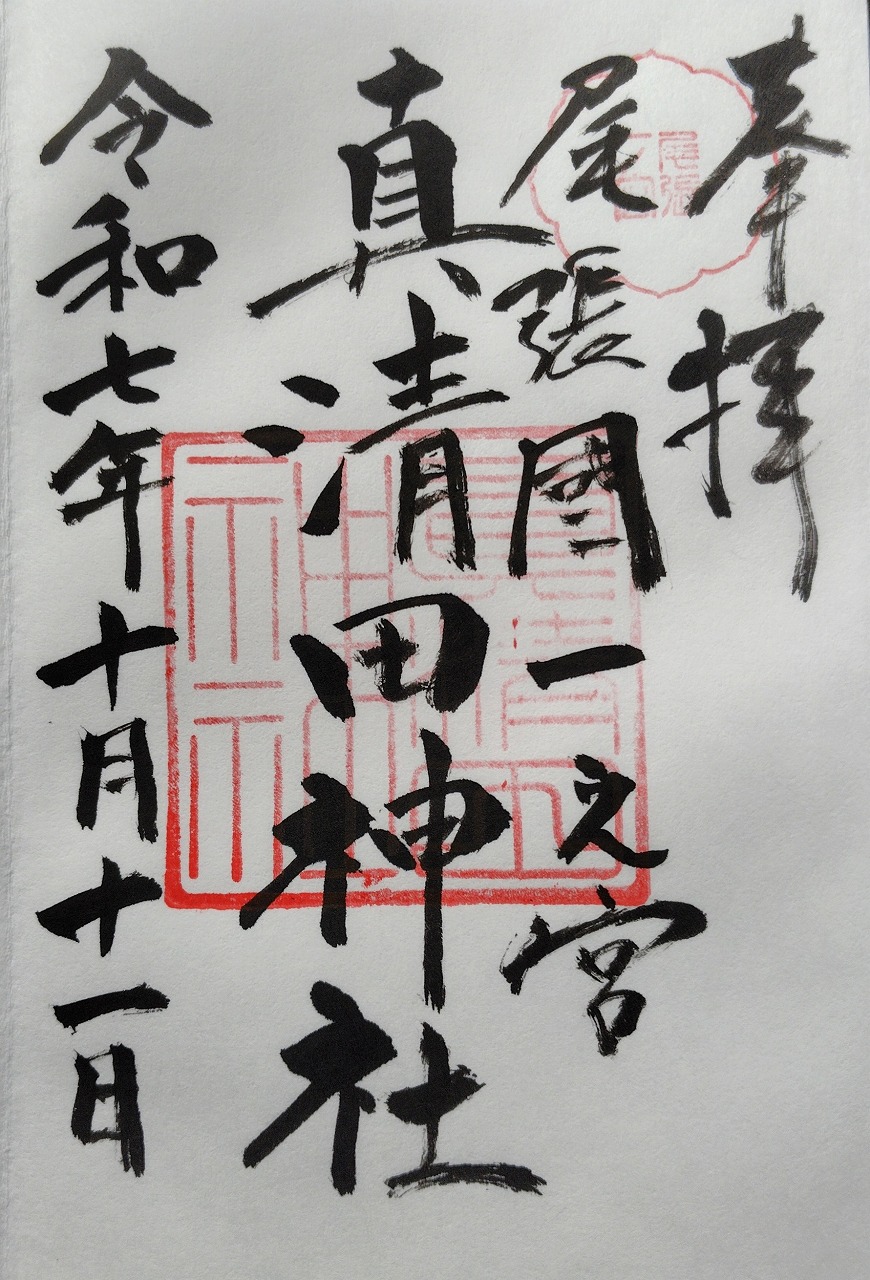 奉拝
尾張國一之宮
真清田神社
令和七年十月十一日